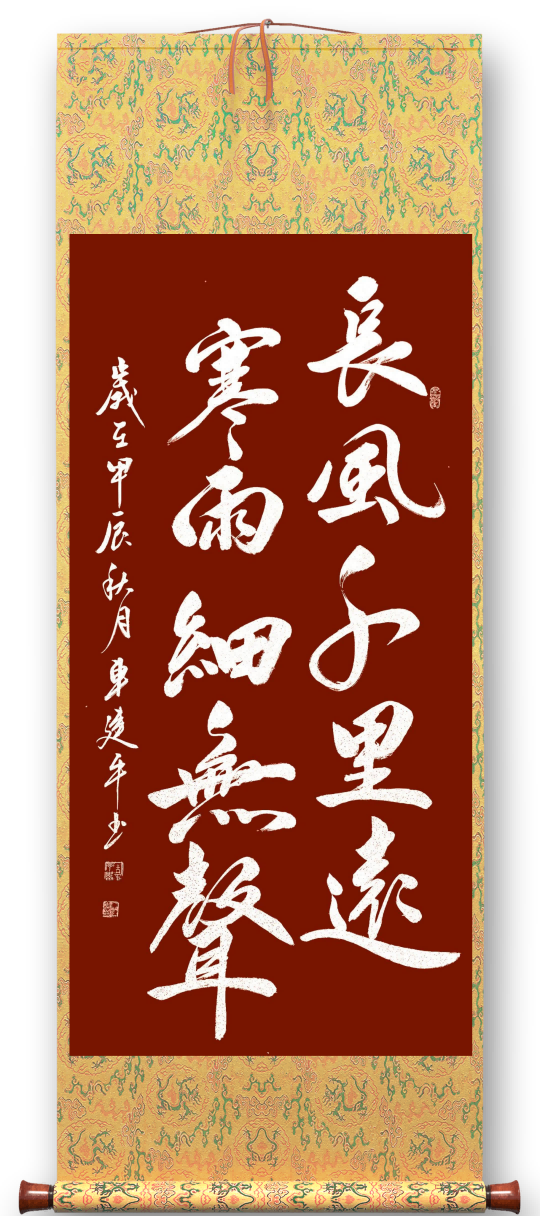 長風千里遠
寒雨細無聲
歲在甲辰秋月車建平书